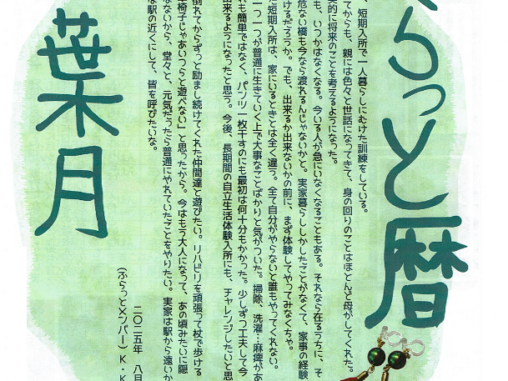 らっと暦
葉月
短期入所で一人暮らしにむけた訓練をしている。
てからも、親には色々と世話になってきて、身の回りのことはほとんど母がしてくれた。
的に将来のことを考えるようになった。
も、いつかはなくなる。今いる人が急にいなくなることもある。それなら在るうちに、そ
危ない橋も今なら渡れるんじゃないかと。実家暮らししかしたことがなくて、家事の経験
けるだろうか。でも、出来るか出来ないかの前に、まず体験してやってみなくちゃ。
短期入所は、家にいるときとは全く違う。全て自分がやらないと誰もやってくれない。
一つ一つが普通に生きていく上で大事なことばかりと気がついた。掃除、洗濯…麻痺があ
も簡単ではなく、パンツ一枚干すのにも最初は何十分もかかった。少しずつ工夫して今
出来るようになったと思う。今後、長期間の自立生活体験入所にも、チャレンジしたいと思
倒れてからずっと励まし続けてくれた仲間達と遊びたい。リハビリを頑張って杖で歩ける
椅子じゃあいつらと遊べない」と思ったから。今はもう大人になって、あの頃みたいに隠
ないから、堂々と、元気だったら普通にやれていたことをやりたい。実家は駅から遠いか
な駅の近くにして、皆を呼びたいな。
二〇二五年 八月
(ふらっとメンバー) K・K